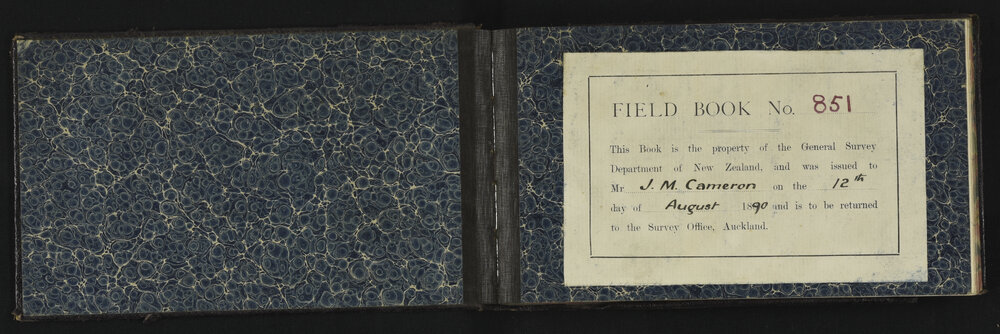 FIELD BOOK No. 851
This Book is the property of the General Survey
Department of New Zealand, and was issued to
Mr J. M. Cameron on the 12th
day of August 1890 and is to be returned
to the Survey Office, Auckland.